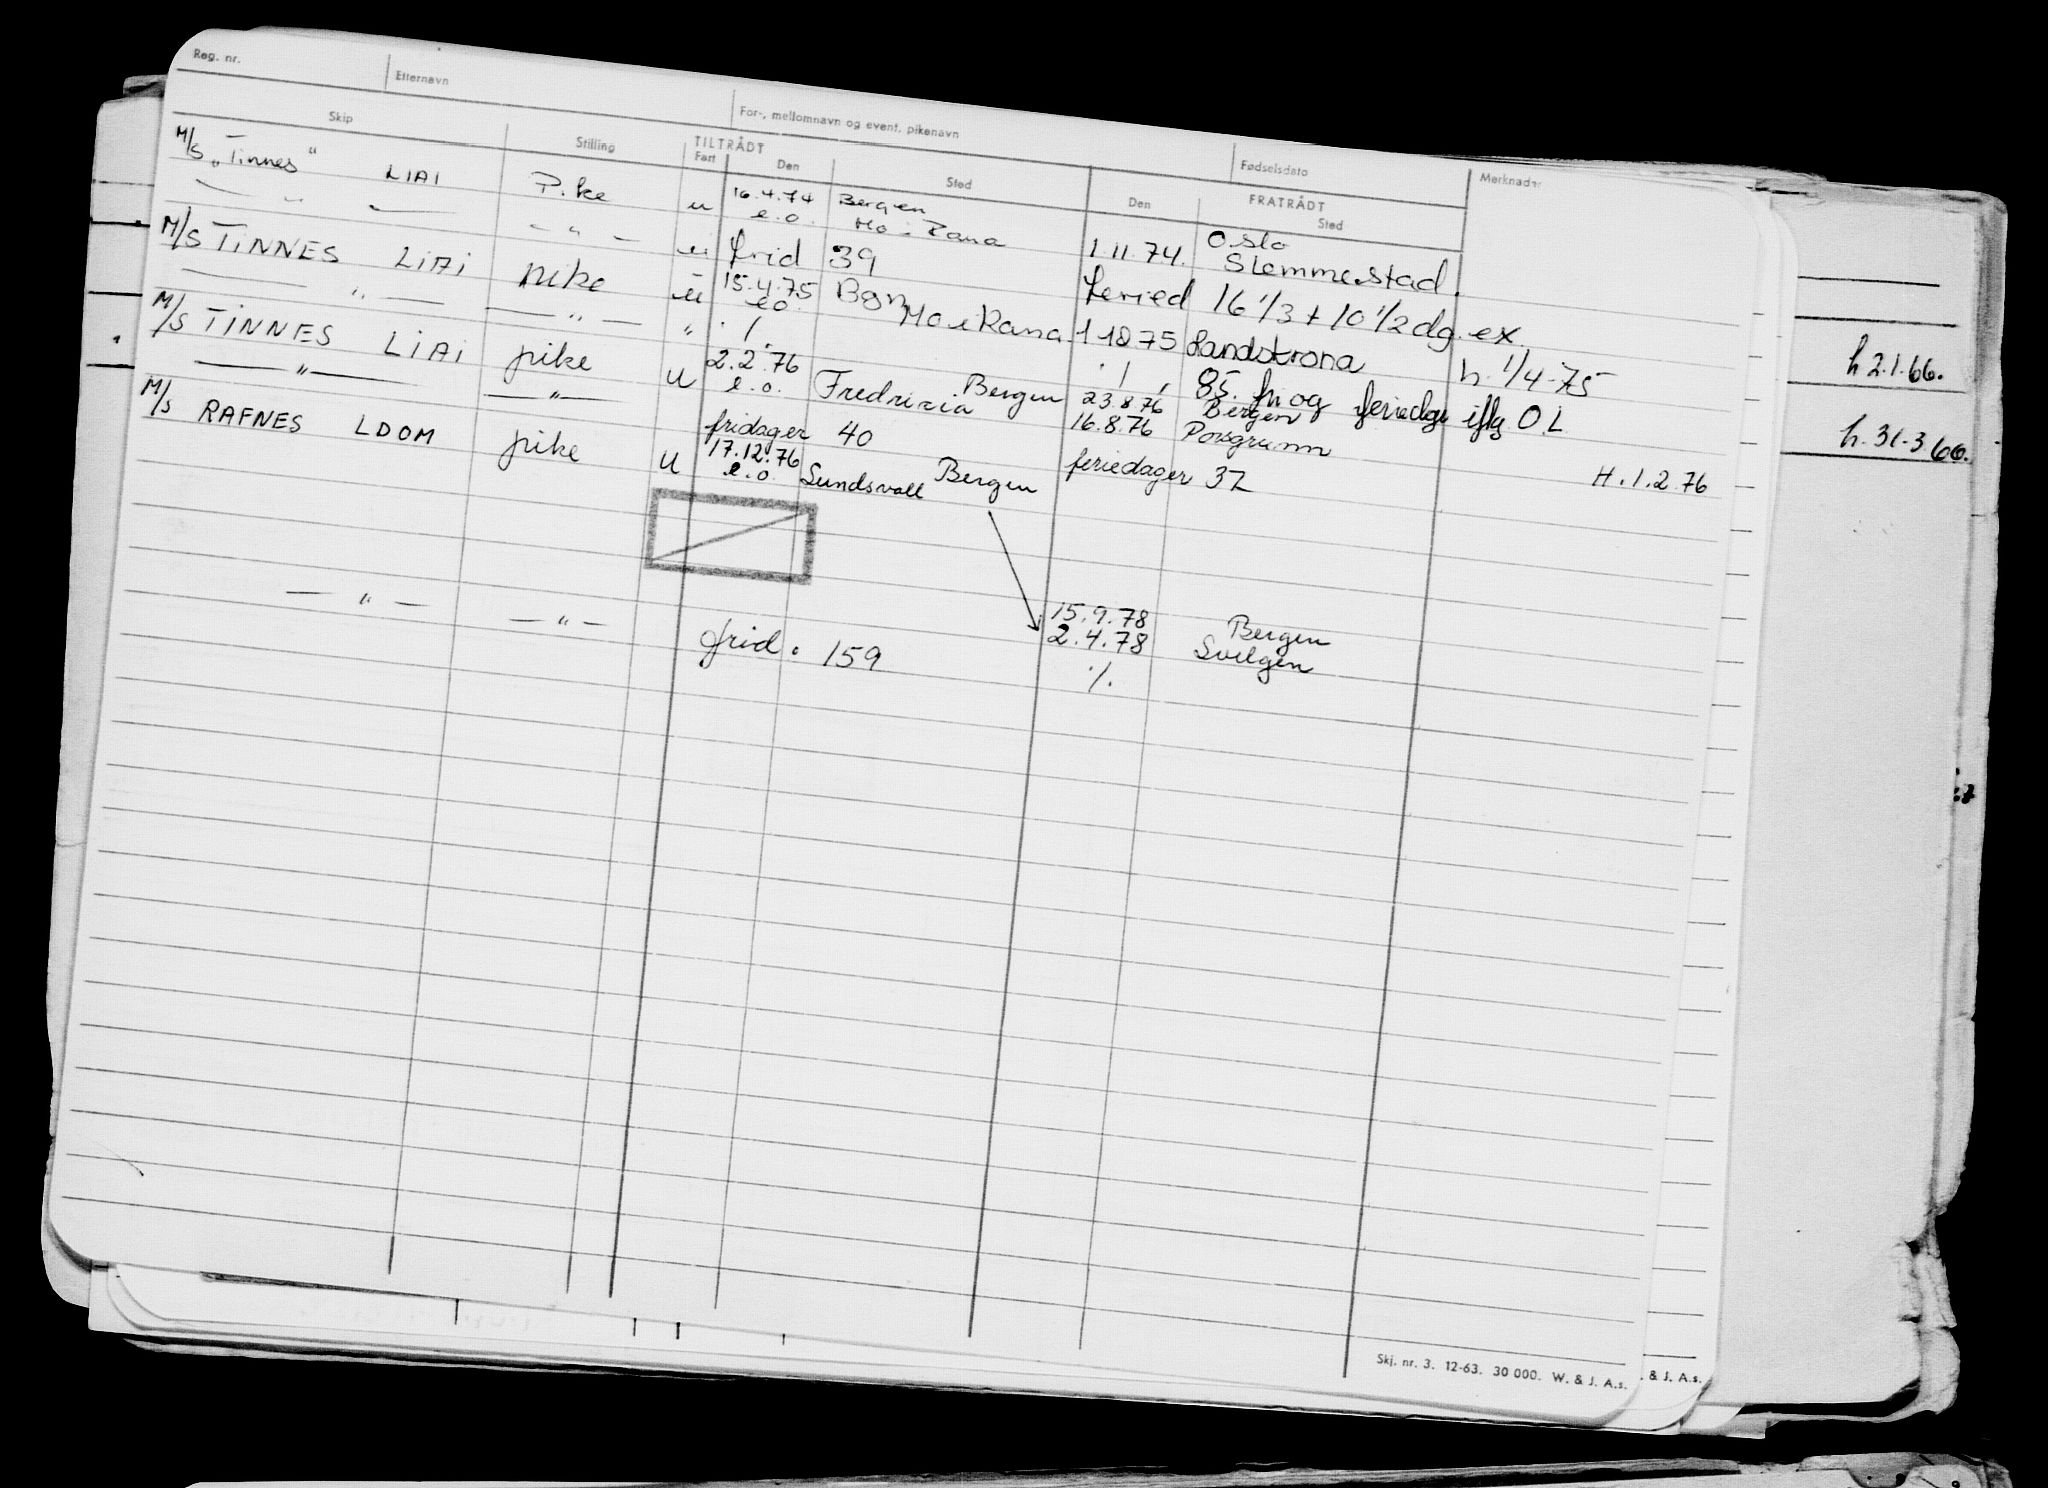 Reg. nr. Etternavn For-, mellomnavn og event. pikenavn Fødselsdato
Skip Stilling TILTRÅDT Fart Den Sted FRATRÅDT Den Sted Merknader
M/S „Tinnes" LIAI Pike u 16.4.74 Bergen 1 11 74. Oslo
— " — — " — e.o. Mo i Rana Slemmestad.
ui frid 39 feried 16 1/3 + 10 1/2 dg. ex.
M/S TINNES LIAI pike u 15.4.75 Bgn 1 10 75 Landskrona h. 1/4-75
— " — — " — " e.o. Mo i Rana
./. ./. 85. fri og feriedage iflg O.L
M/S TINNES LIAI pike u 2.2.76 Bergen 23.8.76 Bergen H.1.2.76
— " — — " — e.o. Fredricia 16.8.76 Porsgrunn
fridager 40 feriedager 32
M/S RAFNES LDOM pike u 17.12.76 Bergen
e.o. Sundsvall
— " — — " — 15.9.78 Bergen
2.4.78 Svelgen
frid. 159 ./.
h 2.1.66.
h. 31.3.66.
Skj. nr. 3. 12-63. 30 000. W. & J. A.s.
. & J. A.s.